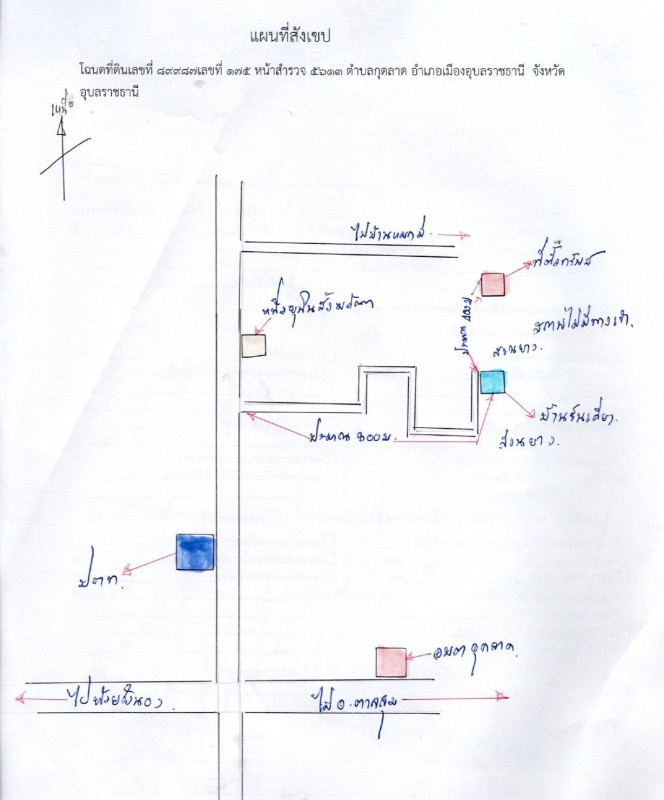 แผนที่สังเขป
โฉนดที่ดินเลขที่ ๘๙๙๘๗เลขที่ ๑๗๕ หน้าสำรวจ ๕๖๑๓ ตำบลกุดลาด อำเภอเมืองอุบลราชธานี จังหวัด
อุบลราชธานี
เหนือ
ไปบ้านหมากมี่
ที่ตั้งทรัพย์
ประมาณ
สภาพไม่มีทางเข้า
สวนยาง.
บ้านชั้นเดียว.
สวนยาง.
ประมาณ ๖๐๐ ม.
ปตท.
อบต กุดลาด.
ไป
ไป อ.ตาลสุม